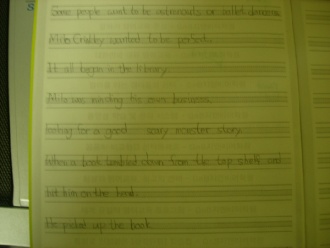 Some people want to be astronauts or ballet dancers.
Milo Crinkley wanted to be perfect.
It all began in the library.
Milo was minding his own business,
looking for a good scary monster story.
When a book tumbled down from the top shelf and
hit him on the head.
He picked up the book